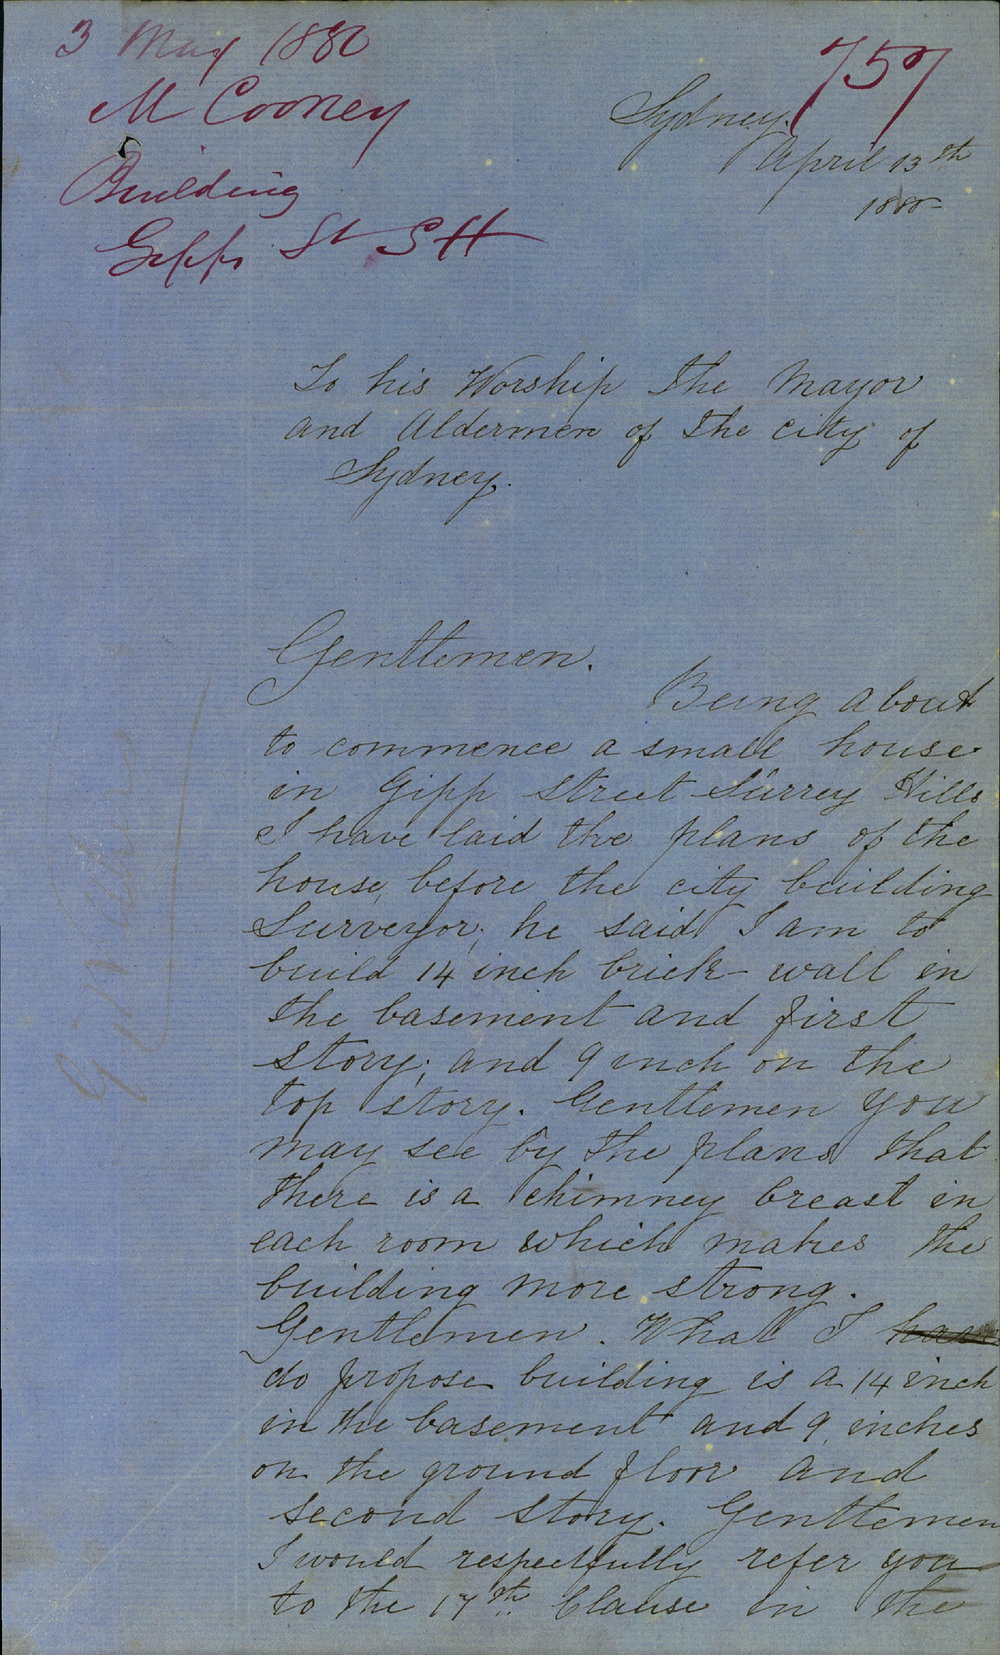 3 May 1880
M Cooney
Building
Gipps St S H
757
Sydney.
April 13th
1880
To his Worship The Mayor
and Aldermen of The City of
Sydney.
Gentlemen.
Being about
to commence a small house
in Gipp Street Surrey Hills
I have laid the plans of the
house, before the city building
Surveyor; he said I am to
build 14 inch brick wall in
the basement and first
story; and 9 inch on the
top story. Gentlemen you
may see by the plans that
there is a chimney breast in
each room which makes the
building more strong.
Gentlemen. What I has
do propose building is a 14 inch
in the basement and 9 inches
on the ground floor and
second story. Gentlemen
I would respectfully refer you
to the 17th Clause in the